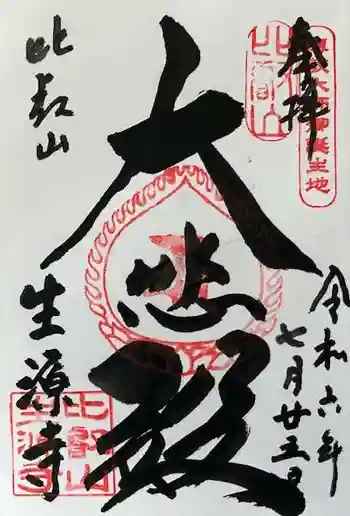 奉拝
伝教大師御誕生地
比叡山
大悲殿
令和六年
七月廿五日
比叡山
生源寺
比叡山
生源寺